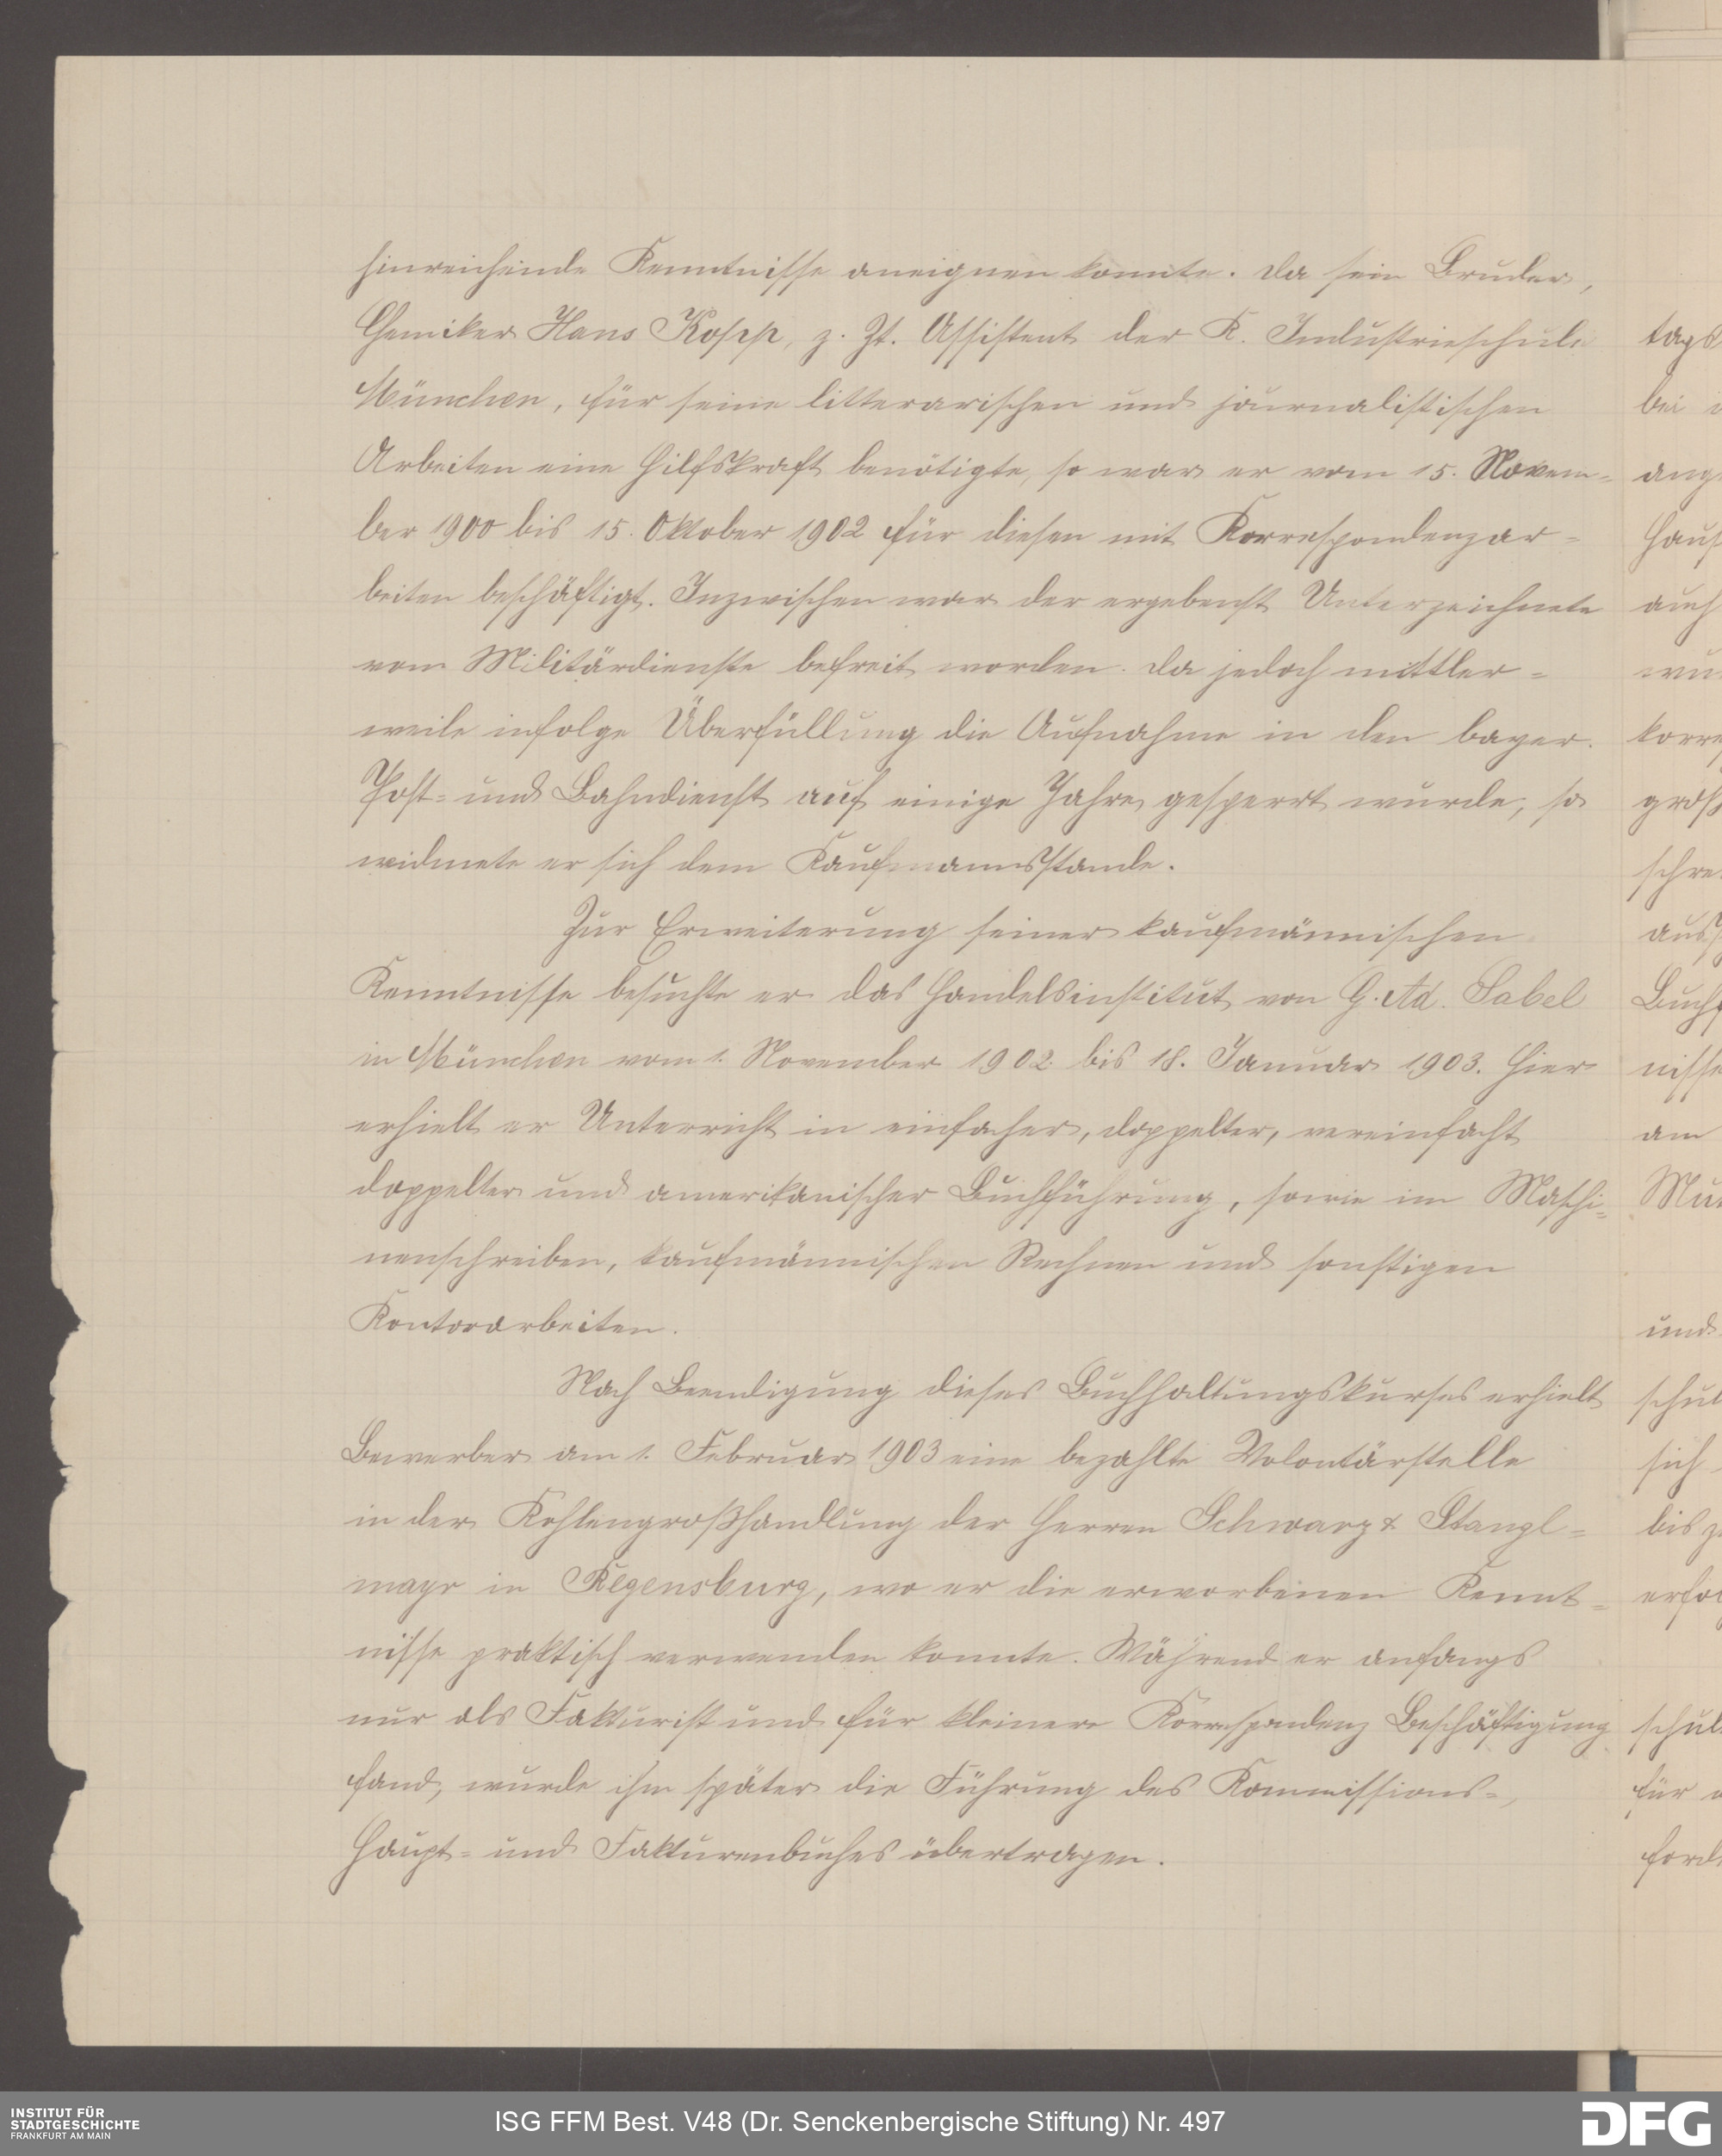 hinreichende Kenntnisse aneignen konnte. Da sein Bruder,
Chemiker Hans Kopp, z. Zt. Assistent der K. Industrieschule
München, für seine litterarischen und journalistischen
Arbeiten eine Hilfskraft benötigte, so war er vom 15. Novem=
ber 1900 bis 15. Oktober 1902 für diesen mit Korrespondenzar=
beiten beschäftigt. Inzwischen war der ergebenst Unterzeichnete
vom Militärdienste befreit worden. Da jedoch mittler=
weile infolge Überfüllung die Aufnahme in den bayer.
Post= und Bahndienst auf einige Jahre gesperrt wurde, so
widmete er sich dem Kaufmannsstande.
Zur Erweiterung seiner kaufmännischen
Kenntnisse besuchte er das Handelsinstitut von G. Ad. Sabel
in München vom 1. November 1902 bis 18. Januar 1903. Hier
erhielt er Unterricht in einfacher, doppelter, vereinfacht
doppelter und amerikanischer Buchführung, sowie im Maschi=
nenschreiben, kaufmännischen Rechnen und sonstigen
Kontorarbeiten.
Nach Beendigung dieses Buchhaltungskurses erhielt
Bewerber am 1. Februar 1903 eine bezahlte Volontärstelle
in der Kohlengroßhandlung der Herren Schwarz & Stangl=
mayr in Regensburg, wo er die erworbenen Kennt=
nisse praktisch verwenden konnte. Während er anfangs
nur als Fakturist und für kleinere Korrespondenz Beschäftigung
fand, wurde ihm später die Führung des Kommissions=,
Haupt= und Fakturenbuches übertragen.
tags
bei
ang
Haus
auch
wu
korre
groß
schre
aus
Buch
nisse
am
Mü
und
schul
sich
bis z
erfol
schul
für
forde
INSTITUT FÜR
STADTGESCHICHTE
FRANKFURT AM MAIN
ISG FFM Best. V48 (Dr. Senckenbergische Stiftung) Nr. 497
DFG